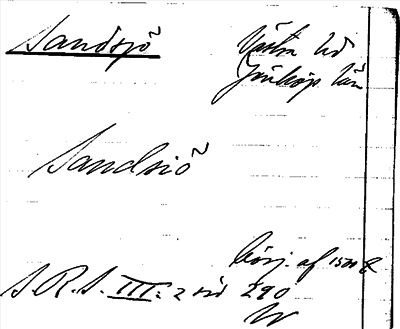 Sandsjö Västra hd
Jönköp. län
Sandsiö
börj. af 1500 t
S.R.S. III:2 sid 290
W